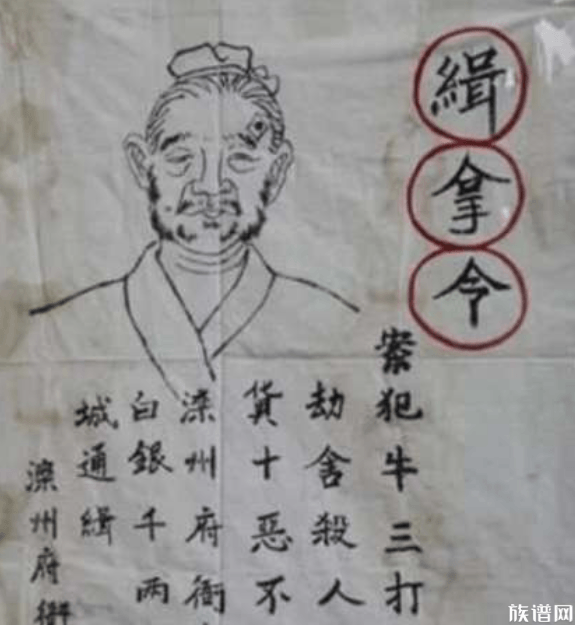 緝拿令
案犯牛三打
劫舍殺人
貨十惡不
滦州府衙
白銀千两
城通緝
滦州府衙
族谱网